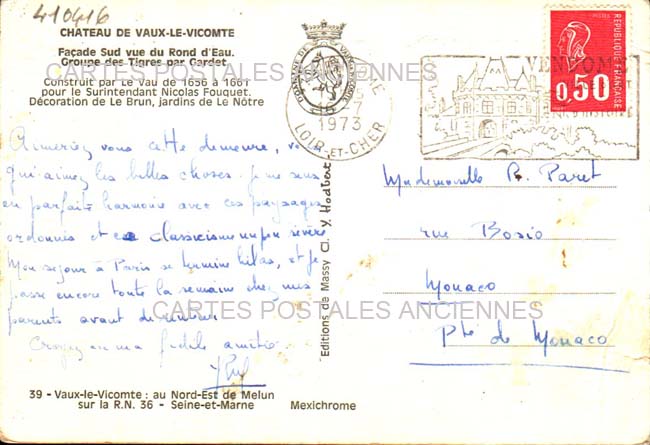 410416
CHATEAU DE VAUX-LE-VICOMTE
Façade Sud vue du Rond d'Eau.
Groupe des Tigres par Gardet
Construit par Le Vau de 1656 à 1661
pour le Surintendant Nicolas Fouquet.
Décoration de Le Brun, jardins de Le Nôtre
Aimeriez vous cette demeure, vous
qui aimez les belles choses. Je me sens
en parfaite harmonie avec ces paysages
ordonnés et ce classicisme un peu sévère
Mon séjour à Paris se termine hélas, et je
passe encore toute la semaine chez mes
parents avant de
Croyez en ma fidèle amitié.
39 - Vaux-le-Vicomte : au Nord-Est de Melun
sur la R.N. 36 - Seine-et-Marne
Mexichrome
Editions de Massy Cl. Y. Hodbert
DOMAINE DE VAUX-LE-VICOMTE
1973
LOIR-ET-CHER
VENDOME
POSTES
REPUBLIQUE FRANÇAISE
0,50
Mademoiselle P. Paret
rue Bosio
Monaco
Pté de Monaco
CARTES POSTALES ANCIENNES
CARTES POSTALES ANCIENNES